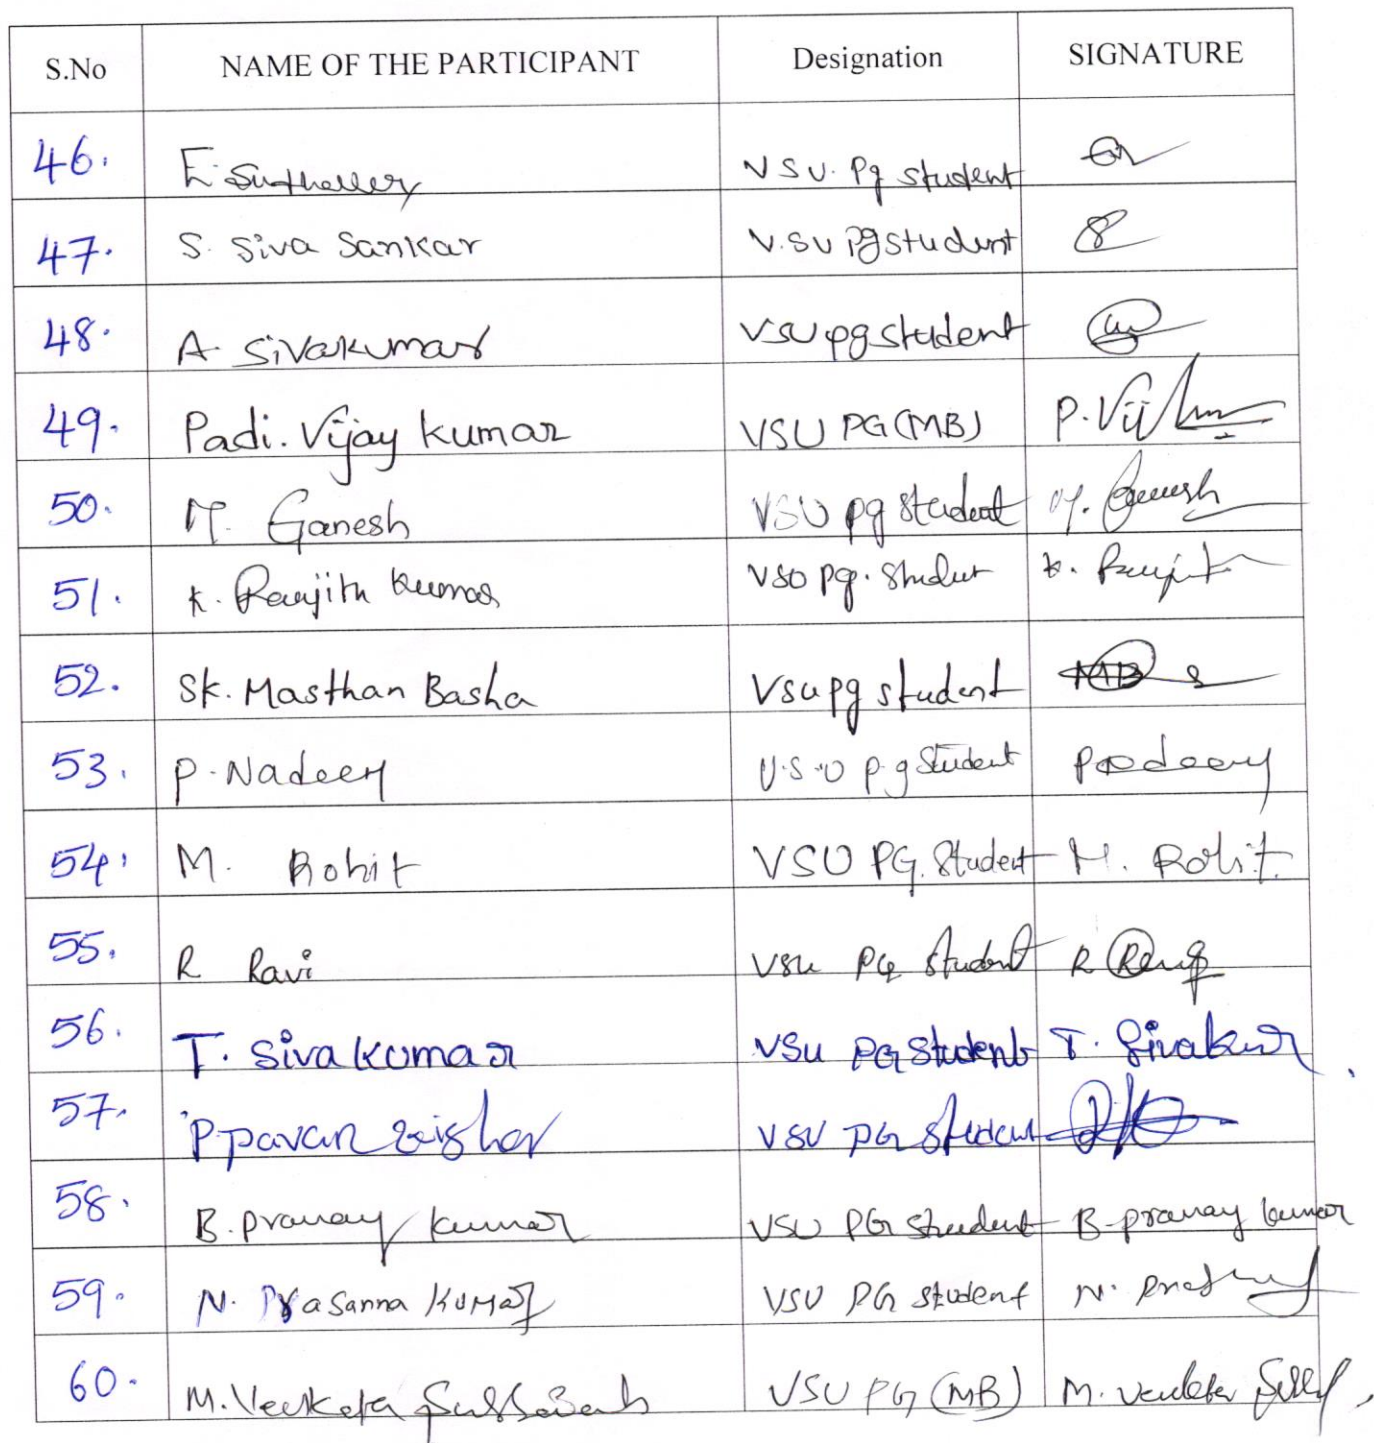 S.No NAME OF THE PARTICIPANT Designation SIGNATURE
46. E. VSU. Pg student
47. S. Siva Sankar V.SU Pg student
48. A. Sivakumar VSU pg student
49. Padi. Vijay kumar VSU PG (MB) P. Vij
50. M. Ganesh VSU pg student M. Ganesh
51. K. Ranjith Kumar VSU pg. Student K. Ranjit
52. Sk. Masthan Basha Vsu pg student MB
53. P. Nadeem V.S.U p.g Student
54. M. Rohit VSU PG. Student M. Rohit.
55. R Ravi VSU PG student R
56. T. Siva kumar VSU PG Student T. Sivakumar
57. P pavan VSU PG Student
58. B. pranay kumar VSU PG Student B. pranay kumar
59. N. Prasanna Kumar VSU PG student N.
60. M. Venkata VSU PG (MB) M. Venkata